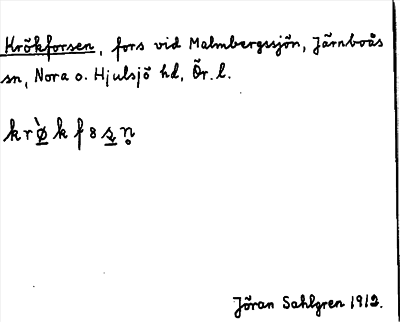 Krökforsen, fors vid Malmbergssjön, Järnboås
sn, Nora o. Hjulsjö hd, Ör. l.
krø̀kfoʂn̥
Jöran Sahlgren 1912.